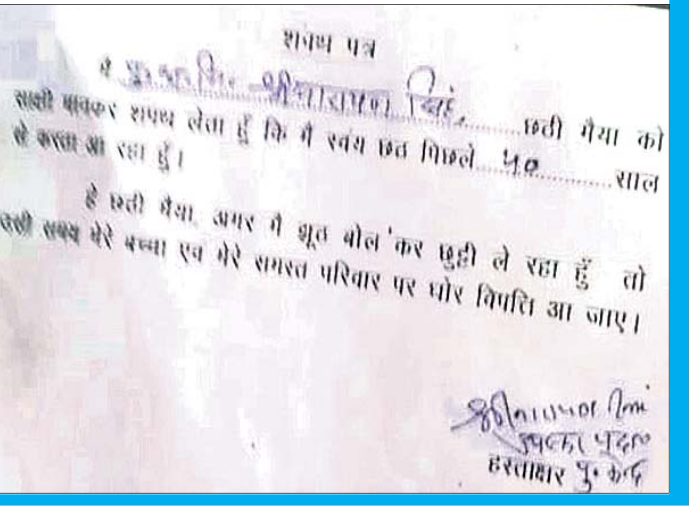 शपथ पत्र
मै पु०अ०नि० श्रीनारायण सिंह, छठी मैया को
साक्षी मानकर शपथ लेता हूँ कि मै स्वंय छठ पिछले 40 साल
से करता आ रहा हूँ।
हे छठी मैया, अगर मै झूठ बोल कर छुट्टी ले रहा हूँ तो
उसी समय मेरे बच्चा एवं मेरे समस्त परिवार पर घोर विपत्ति आ जाए।
श्रीनारायण सिंह
हस्ताक्षर पु० केन्द्र